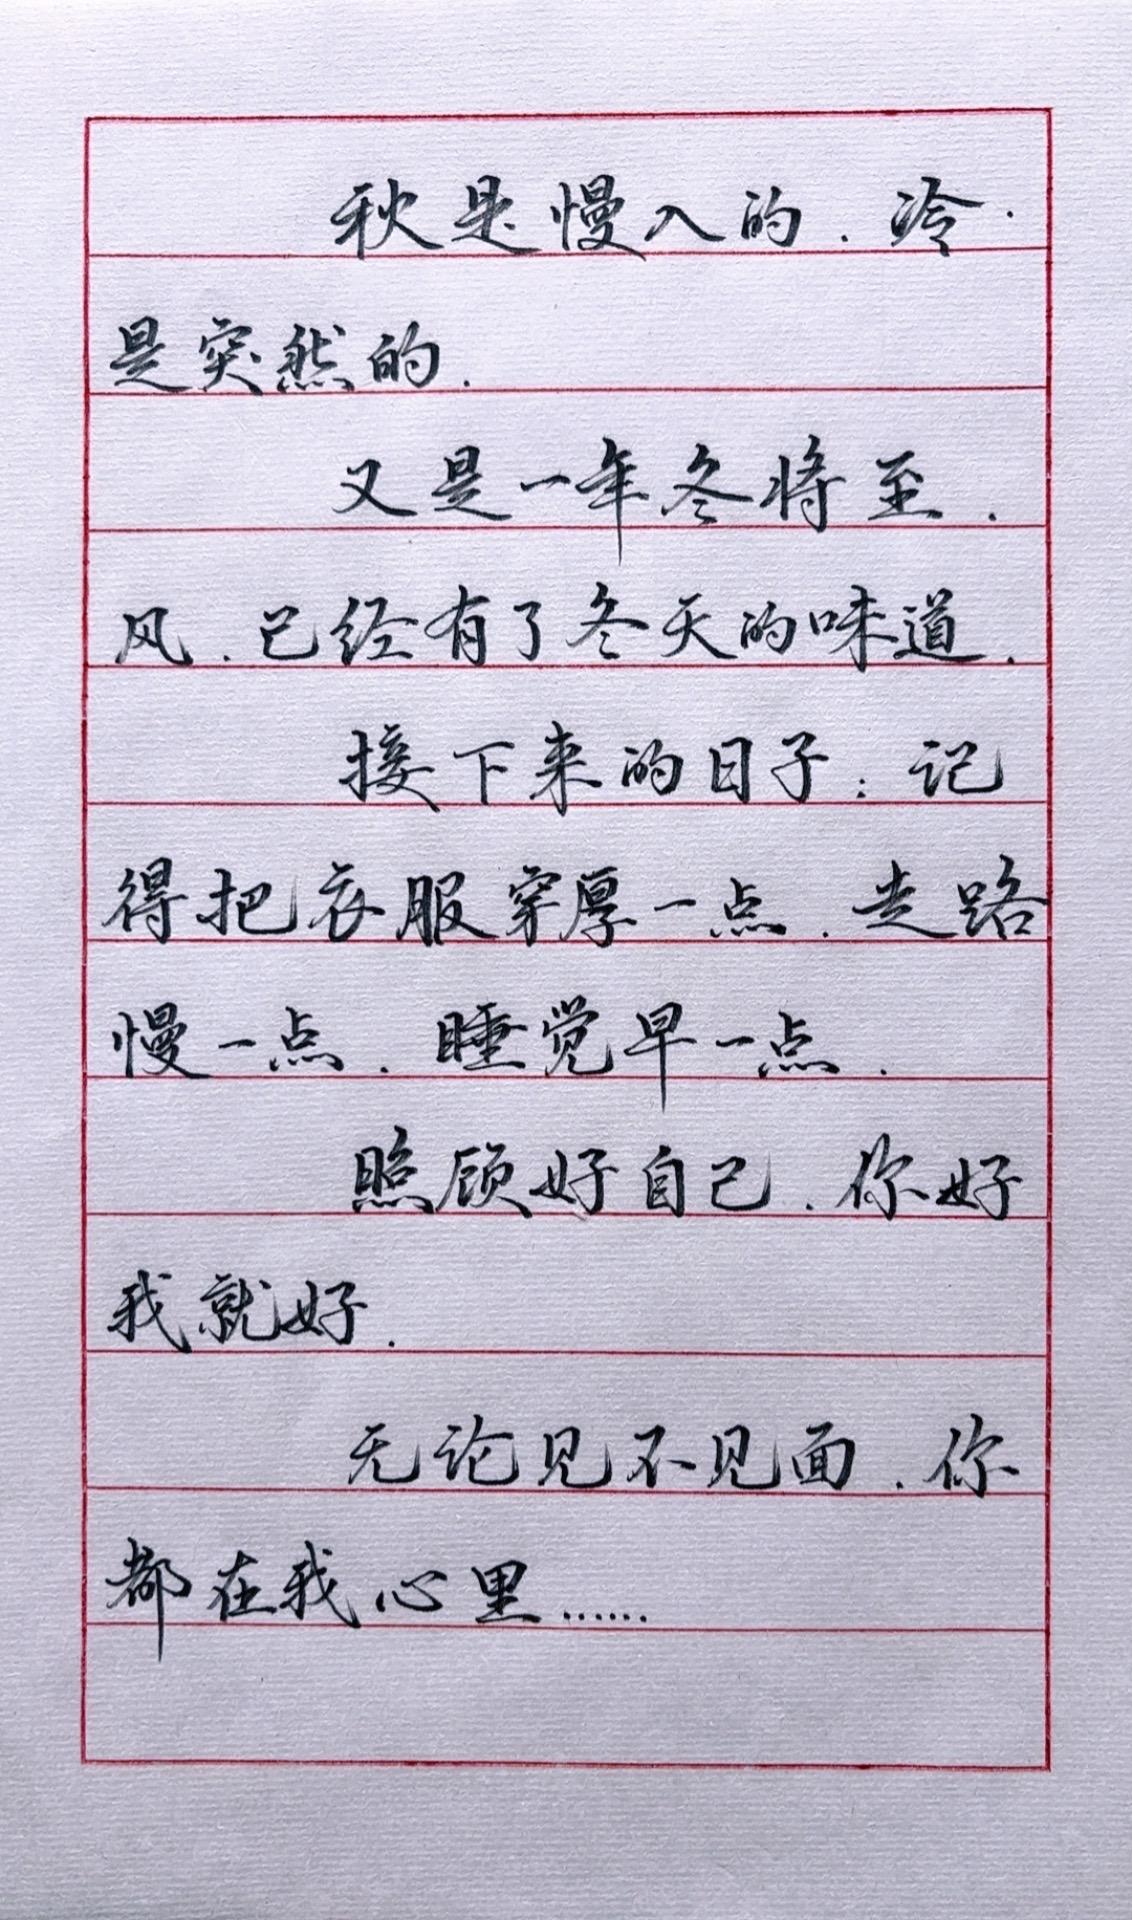 秋是慢入的.冷.
是突然的.
又是一年冬将至.
风.已经有了冬天的味道.
接下来的日子:记
得把衣服穿厚一点.走路
慢一点.睡觉早一点.
照顾好自己.你好
我就好.
无论见不见面.你
都在我心里……